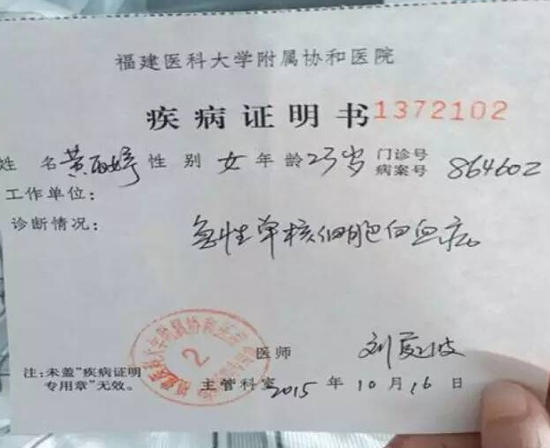 福建医科大学附属协和医院
疾病证明书 1372102
姓名 黄 婷 性别 女 年龄 23岁 门诊号 病案号 864602
工作单位:
诊断情况:
急性单核细胞白血病。
2
医师 刘
注:未盖"疾病证明
专用章"无效。
主管科室 2015 年 10 月 16 日